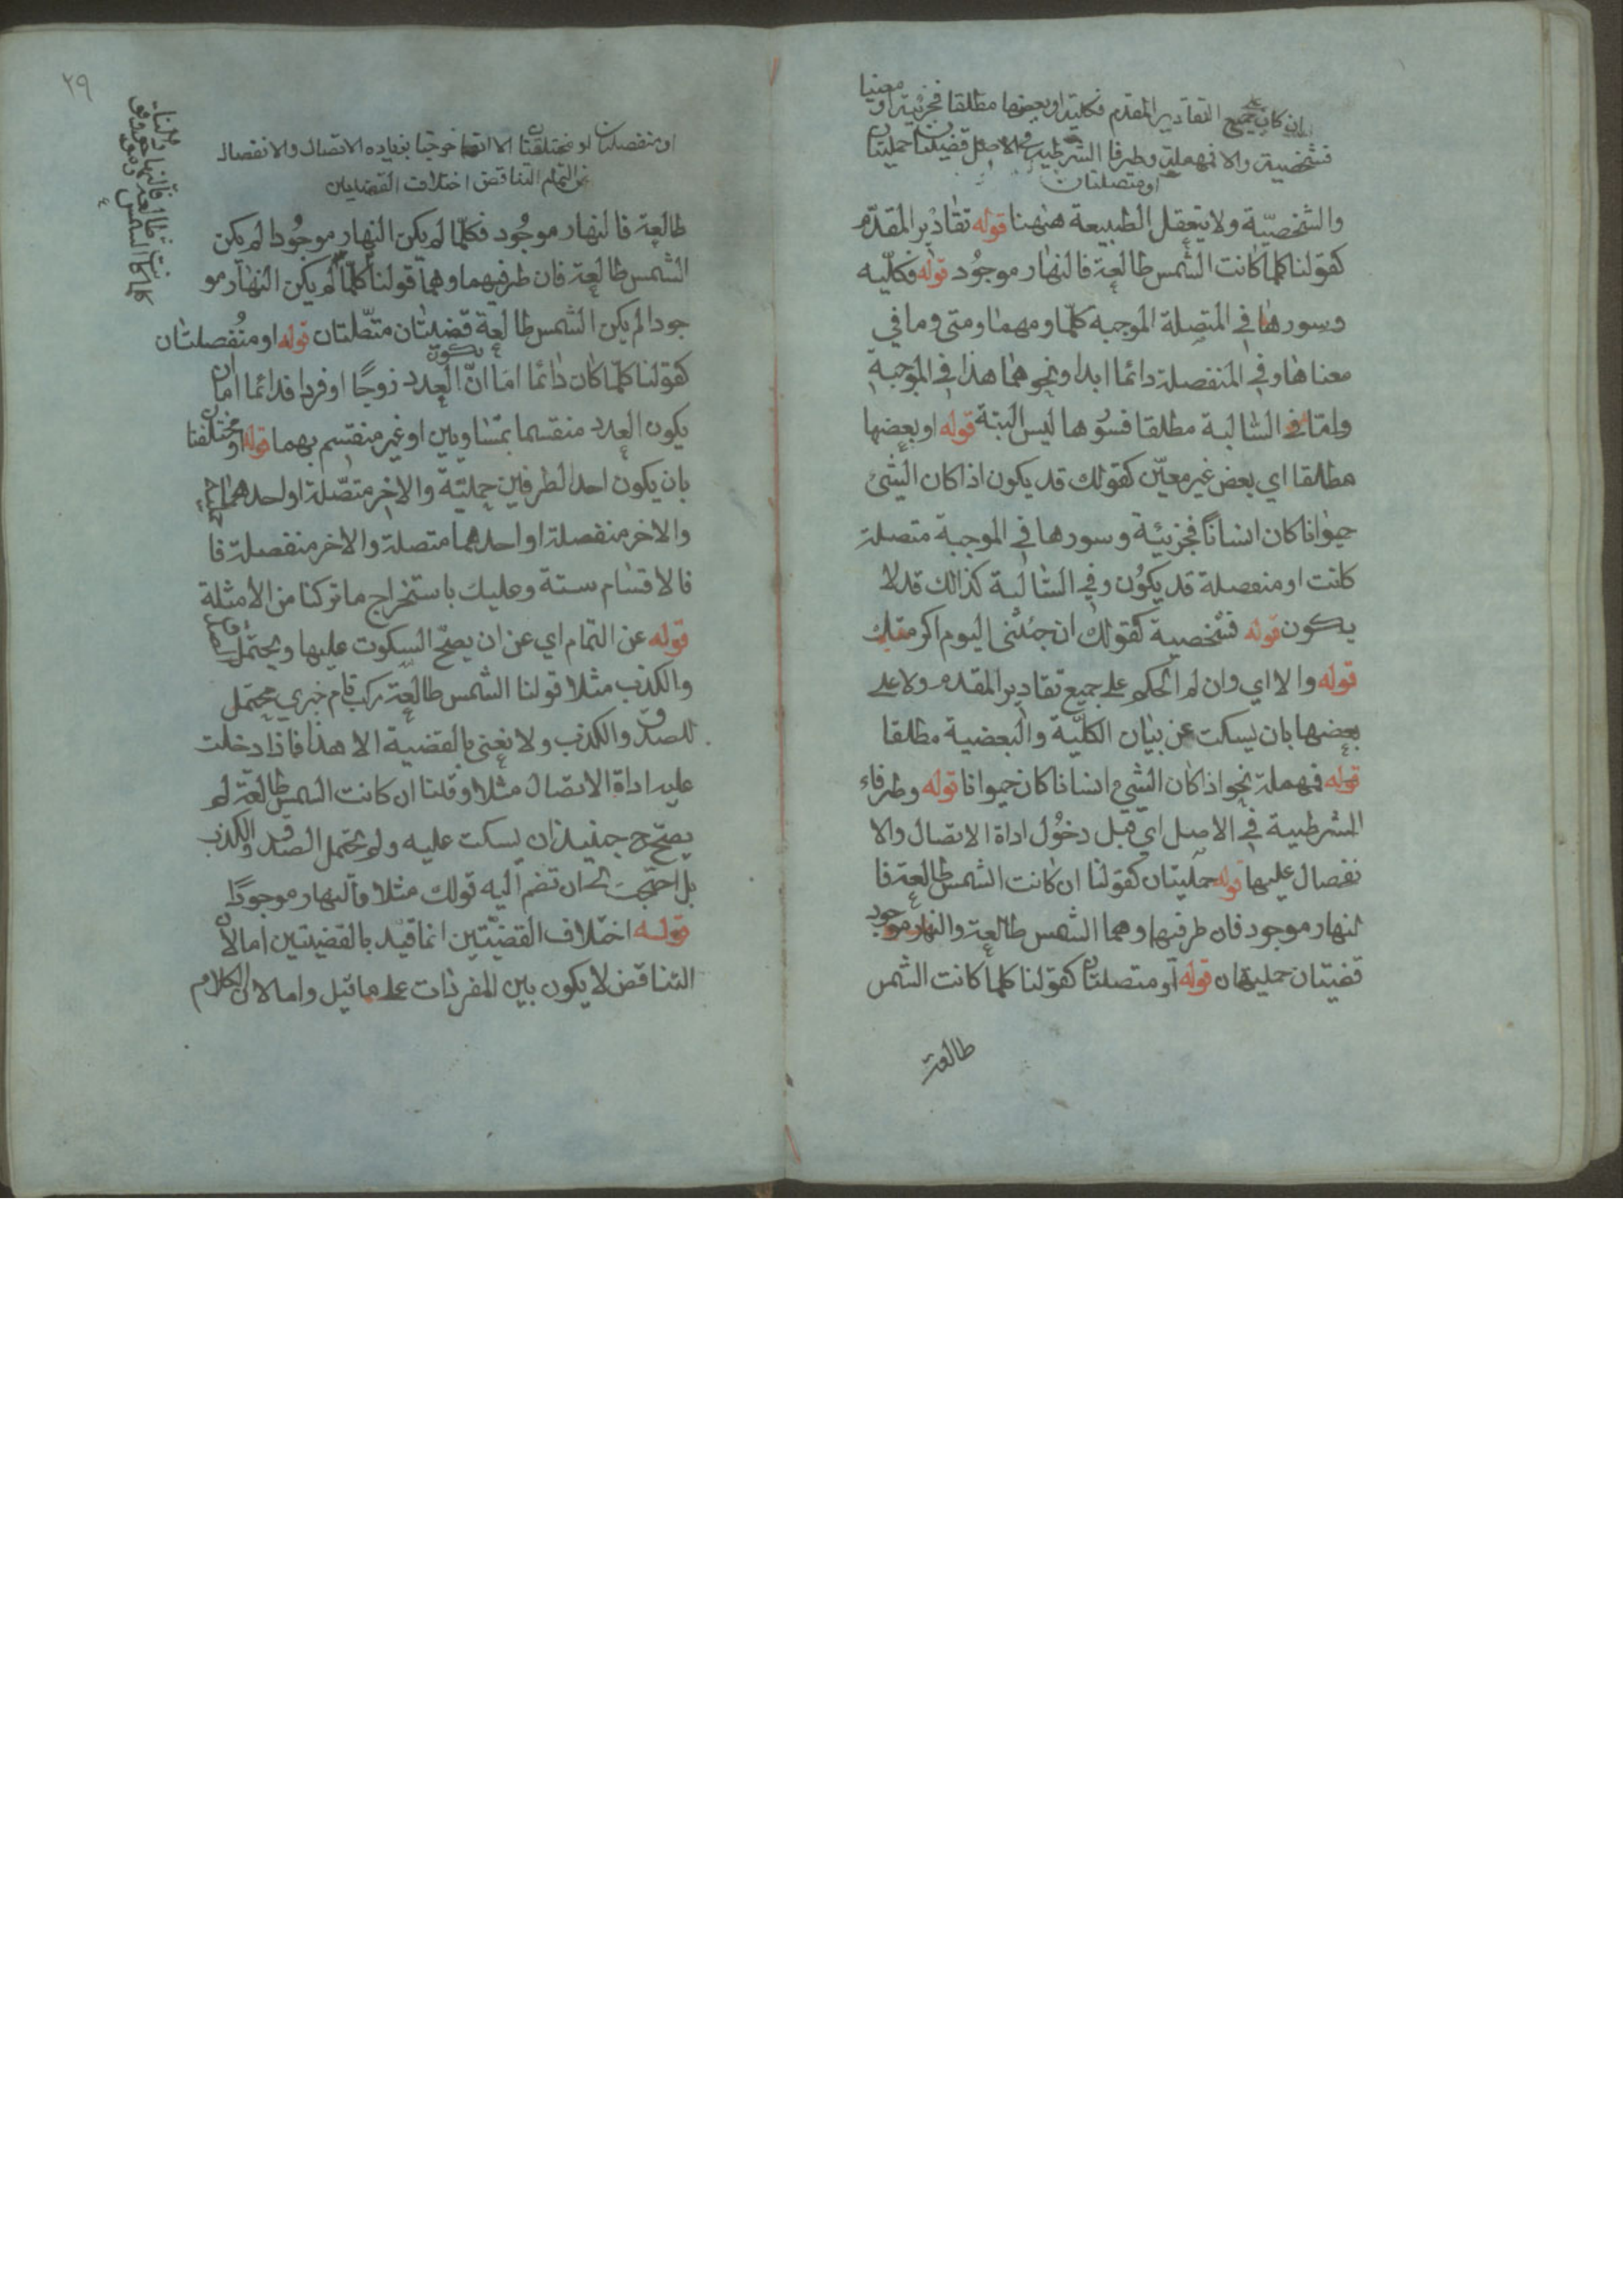 ان كان على جميع التقادير المقدم فكلية او بعضها مطلقا فجزئية او معينا
فشخصية والا فمهملة وطرفا الشرطية في الاصل قضيتان حمليتان
او متصلتان
والشخصيّة ولا يتعقل الطبيعة ههنا قوله تقادير المقدّم
كقولنا كلما كانت الشمس طالعة فالنهار موجود قوله فكلّيه
وسورها في المتصلة الموجبة كلّما ومهما ومتى وما في
معناها وفي المنفصلة دائما ابدا ونحوهما هذا في الموجبة
وامّا في السالبة مطلقا فسورها ليس البتة قوله او بعضها
مطلقا اي بعض غير معيّن كقولك قد يكون اذا كان الشئ
حيوانا كان انسانًا فجزئية وسورها في الموجبة متصلة
كانت او منفصلة قد يكون وفي السالبة كذالك قد لا
يكون قوله فشخصية كقولك ان جئتنى اليوم اكرمتك
قوله والا اي وان لم الحكم على جميع تقادير المقدم ولا على
بعضها بان يسكت عن بيان الكليّة والبعضية مطلقا
قوله فمهملة نحو اذا كان الشئ انسانا كان حيوانا قوله وطرفاء
الشرطية في الاصل اي قبل دخول اداة الاتصال والا
نفصال عليها قوله حمليتان كقولنا ان كانت الشمس طالعة فا
لنهار موجود فان طرفيها وهما الشمس طالعة والنهار موجود
قضيتان حمليتان قوله او متصلتان كقولنا كلما كانت الشمس
طالعة
٢٩
او منفصلتان او مختلفتان الا انهما خرجتا بزياده الاتصال والانفصال
عن التمام التناقض اختلاف القضيتين
طالعة فالنهار موجود فكلّما لم يكن النهار موجودا لم يكن
الشمس طالعة فان طرفيهما وهما قولنا كلّما لم يكن النهار مو
جودا لم يكن الشمس طالعة قضيتان متّصلتان قوله او منفصلتان
كقولنا كلّما كان دائما امّا انّ يكون العدد زوجًا او فردا فدائما اما ان
يكون العدد منقسما بمتساويين او غير منقسم بهما قوله او مختلفتان
بان يكون احد الطرفين حمليّة والاخر متصّلة او احدهما حملية
والاخر منفصلة او احدهما متصلة والاخر منفصلة فا
فالاقسام ستة وعليك باستخراج ما تركنا من الأمثلة
قوله عن التمام اي عن ان يصحّ السكوت عليها ويحتمل الصدق
والكذب مثلا قولنا الشمس طالعة مركب تام خبري محتمل
للصدق والكذب ولا نعنى بالقضية الا هذا فاذا دخلت
عليه اداة الاتصال مثلا وقلنا ان كانت الشمس طالعة لم
يصحّ ح حينئذ ان يسكت عليه ولم يحتمل الصدق والكذب
بل احتجت الى ان تضم اليه قولك مثلا فالنهار موجودًا
قوله اختلاف القضيّتين انما قيد بالقضيتين اما لان
التناقض لا يكون بين المفردات على ما قيل واما لان الكلام